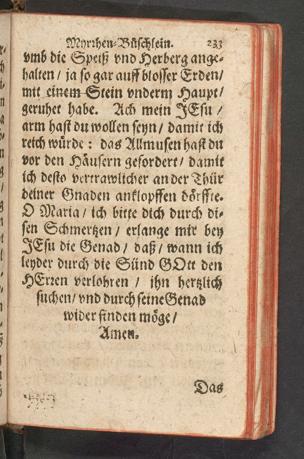 Myrrhen-Büschlein. 233
vmb die Speiß vnd Herberg ange-
halten / ja so gar auff blosser Erden /
mit einem Stein vnderm Haupt /
geruhet habe. Ach mein JEsu /
arm hast du wollen seyn / damit ich
reich würde : das Allmusen hast du
vor den Häusern gefordert / damit
ich desto vertrawlicher an der Thür
deiner Gnaden anklopffen dörffte.
O Maria / ich bitte dich durch di-
sen Schmertzen / erlange mir bey
JEsu die Genad / daß / wann ich
leyder durch die Sünd GOtt den
HErren verlohren / ihn hertzlich
suchen / vnd durch seine Genad
wider finden möge /
Amen.
Das